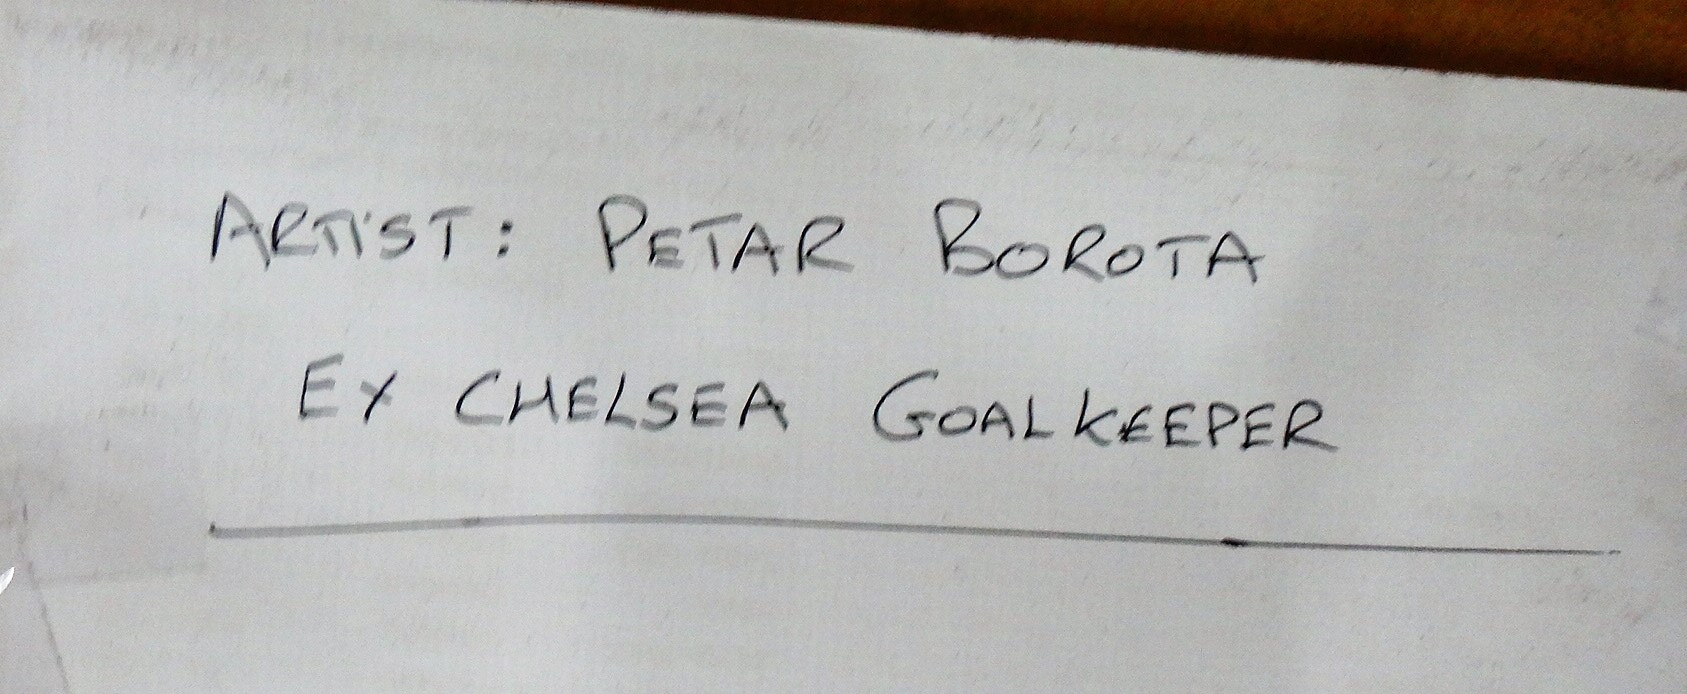 ARTIST: PETAR BOROTA
EX CHELSEA GOALKEEPER